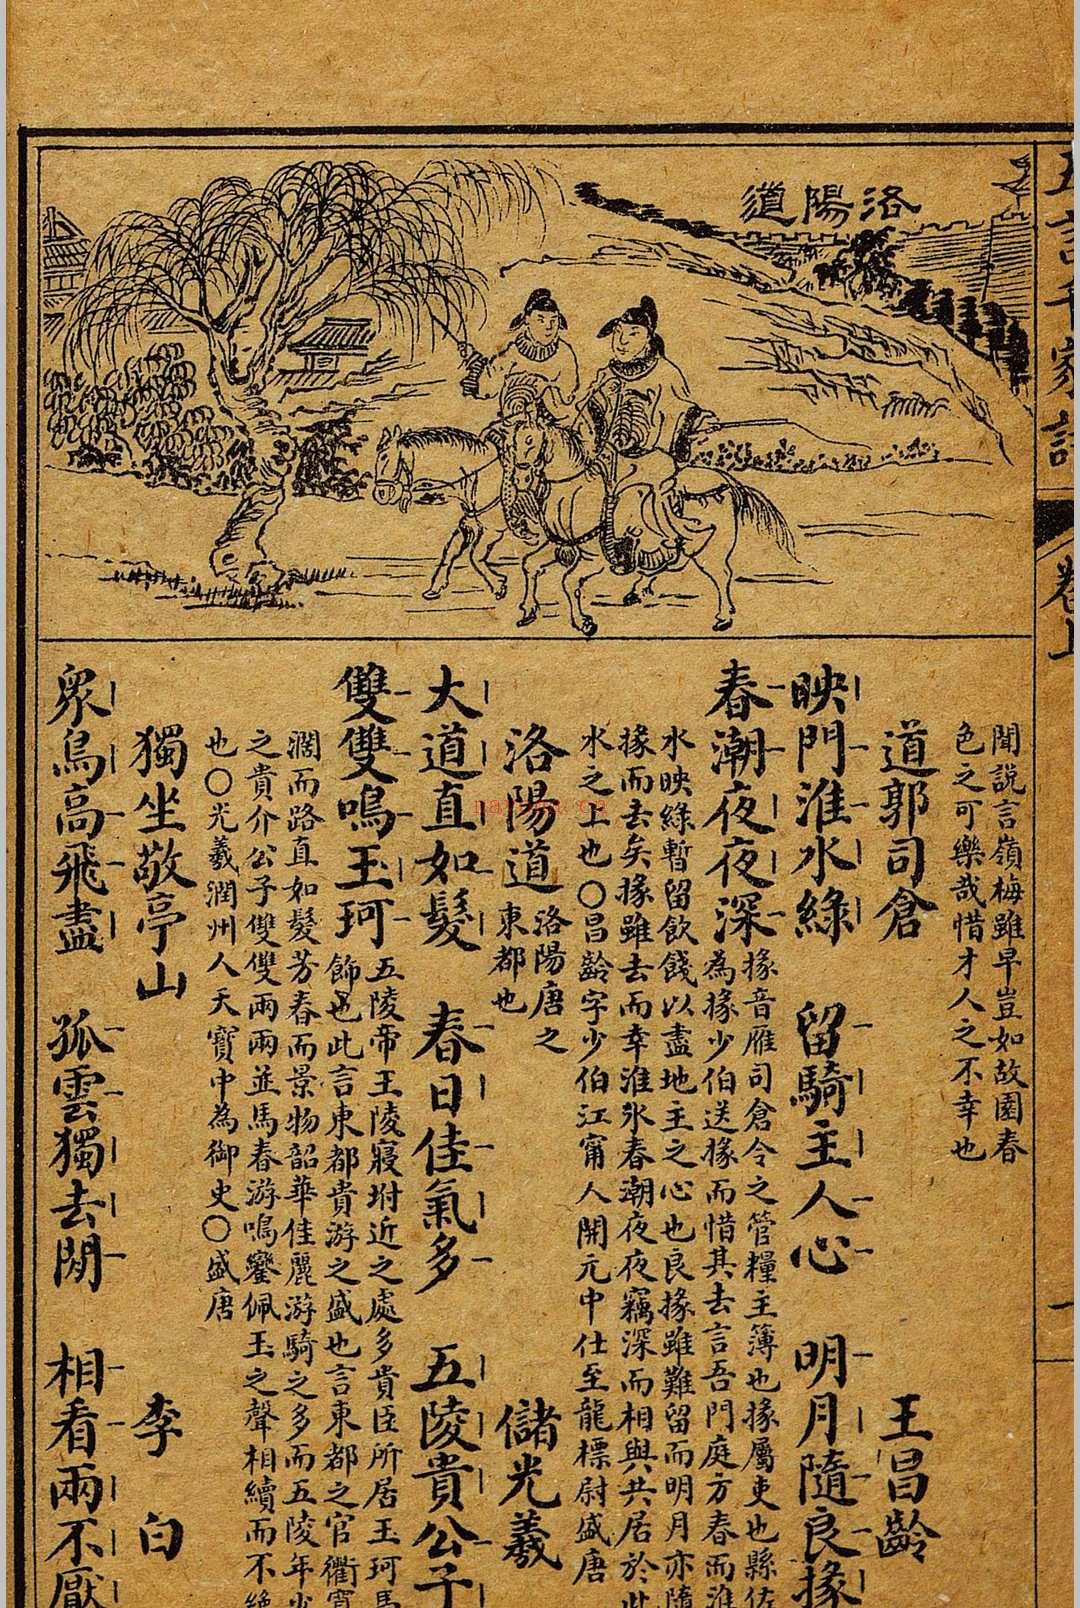 洛陽道
聞説言嶺梅雖早豈如故園春
色之可樂哉惜才人之不幸也
道郭司倉　王昌齡
映門淮水綠　留騎主人心　明月隨良掾
春潮夜夜深
掾音雁司倉令之管糧主簿也掾屬吏也縣佐
為掾少伯送掾而惜其去言吾門庭方春而淮
水映綠暫留飲餞以盡地主之心也良掾雖難留而明月亦隨
掾而去矣掾雖去而幸淮水春潮夜夜竊深而相與共居於此
水之上也〇昌齡字少伯江甯人開元中仕至龍標尉盛唐
洛陽道　儲光羲
洛陽唐之
東都也
大道直如髮　春日佳氣多　五陵貴公子
雙雙鳴玉珂
五陵帝王陵寢坿近之處多貴臣所居玉珂馬
飾也此言東都貴游之盛也言東都之官衢寬
濶而路直如髮芳春而景物韶華佳麗游騎之多而五陵年少
之貴介公子雙雙兩兩並馬春游鳴鑾佩玉之聲相續而不絶
也〇光羲潤州人天寶中為御史〇盛唐
獨坐敬亭山　李白
衆鳥高飛盡　孤雲獨去閒　相看兩不厭